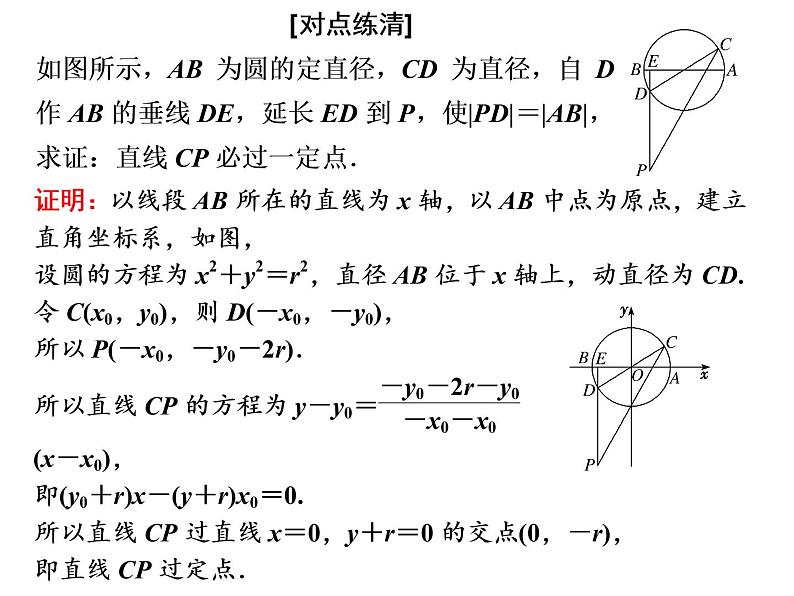 [对点练清]
如图所示，AB 为圆的定直径，CD 为直径，自 D
作 AB 的垂线 DE，延长 ED 到 P，使|PD|＝|AB|，
求证：直线 CP 必过一定点．
C
B E A
D
P
证明：以线段 AB 所在的直线为 x 轴，以 AB 中点为原点，建立
直角坐标系，如图，
设圆的方程为 x²＋y²＝r²，直径 AB 位于 x 轴上，动直径为 CD.
令 C(x₀，y₀)，则 D(－x₀，－y₀)，
所以 P(－x₀，－y₀－2r)．
所以直线 CP 的方程为 y－y₀＝(－y₀－2r－y₀)/(－x₀－x₀)
(x－x₀)，
即(y₀＋r)x－(y＋r)x₀＝0.
所以直线 CP 过直线 x＝0，y＋r＝0 的交点(0，－r)，
即直线 CP 过定点．
y
C
B E
O A x
D
P